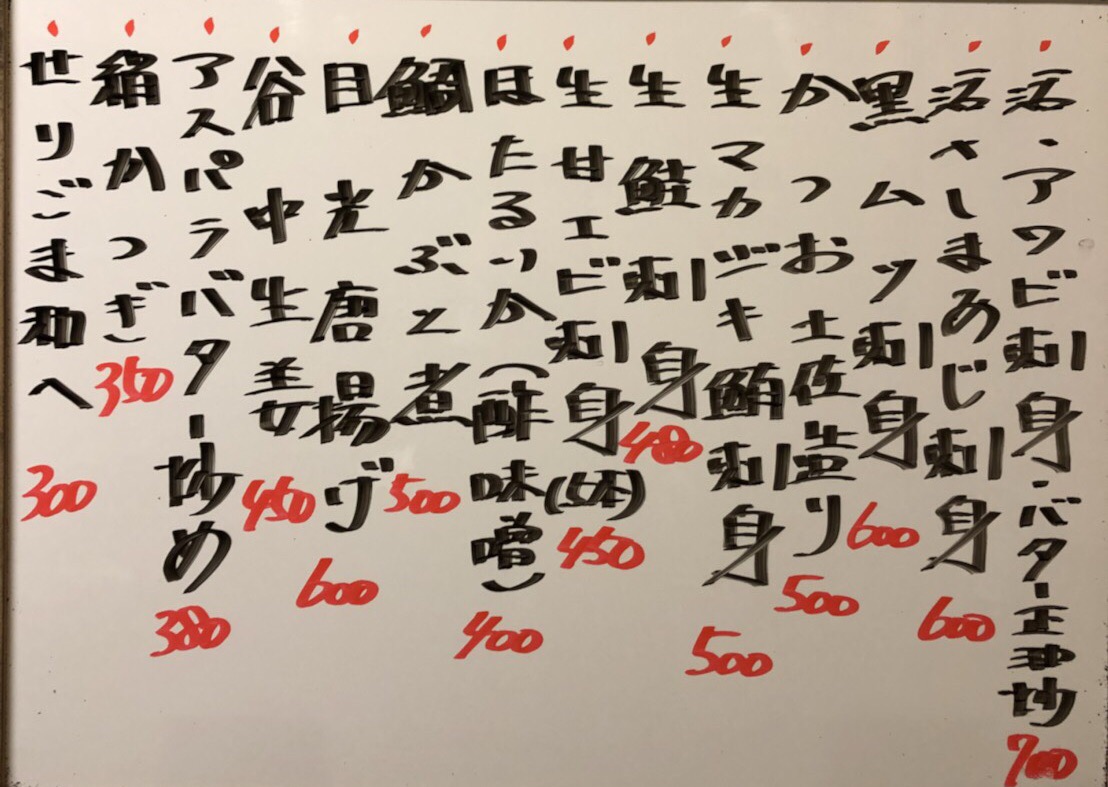 活・アワビ刺身・バター正油炒 700
活きしまあじ刺身 600
黒ムツ刺身 600
かつお土佐造り 500
生マカジキ鮪刺身 500
生鮭刺身 480
生甘エビ刺身(5本) 450
ほたるいか(酢味噌) 400
鯛かぶと煮 500
目光唐揚げ 600
谷中生姜 450
アスパラバター炒め 380
絹かつぎ 350
せりごま和へ 300